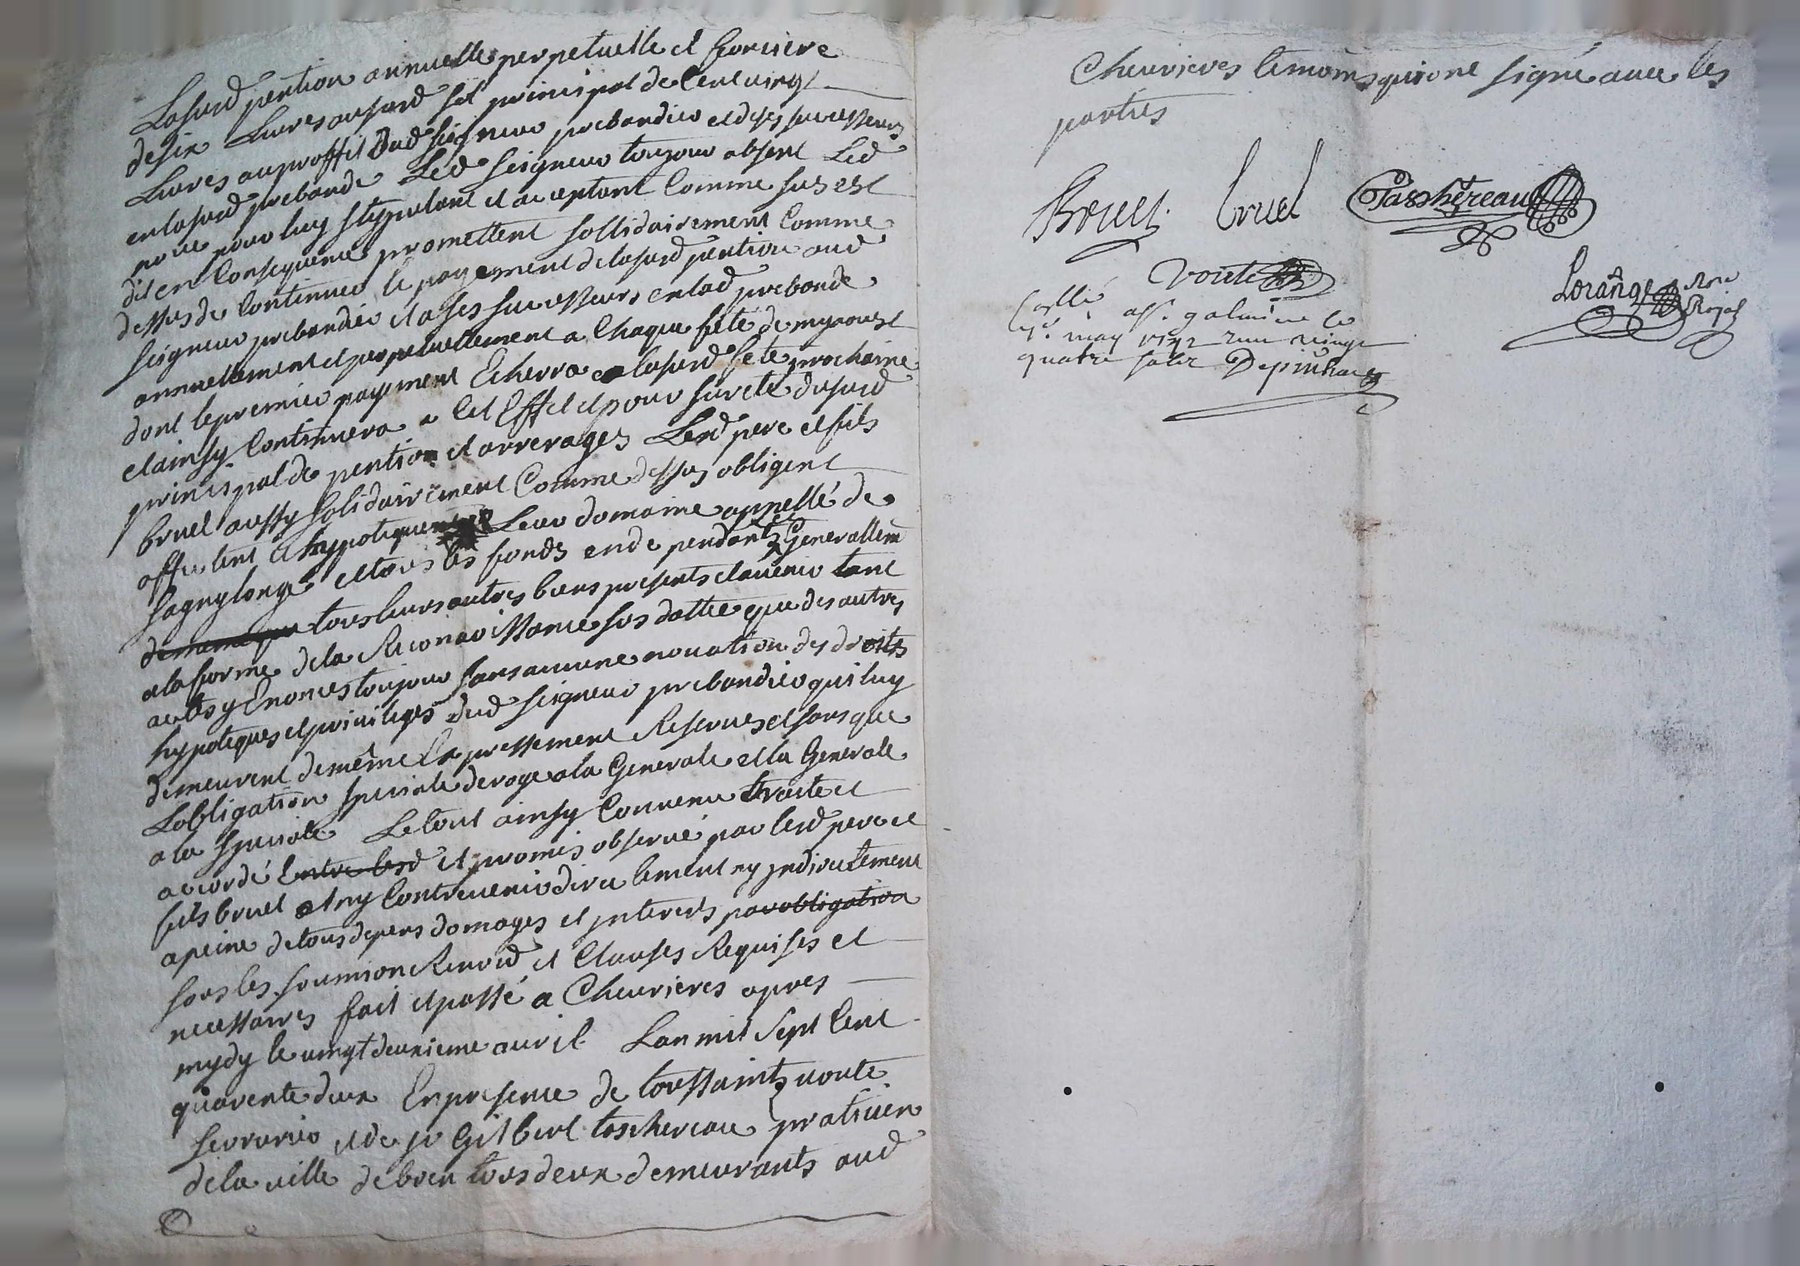 Lasusd pention annuelle perpetuelle et fonciere
de six Livres ausусd sol principal de Cent vingt
Livres au proffit dud seigneur prebandier et de ses successeurs
en lasusd prebande Led seigneur toujour absent Led
pour luy stypulant et acceptant Comme sus est
dit en Consequence promettent sollidairement Comme
dessus de Continuer le payement de lasusd pention aud
seigneur prebandier et a ses successeurs en lad prebande
annuellement et perpetuellement a Chaque fete de myaoust
dont le premier payement Echerra a lasusd fete prochaine
et ainsy Continuera a Cet Effet et pour surete dususd
principal de pention et arrerages Lesd pere et fils
bruel aussy solidairement Comme dessus obligent
affectent et hypotequent Leur domaine appellé de
sagnylonge et tous les fonds en dependants et Generallemt
de meme que tous leurs autres biens presents et avenir tant
a la forme de la Reconnoissance sus dattee que des autres
actes y Enoncés toujour sans aucune novation des droits
hypoteques et privileges dud seigneur prebandier qui luy
demeurent de même Expressement Reservés et sans que
Lobligation speciale deroge a la Generale et la Generale
a la speciale Le tout ainsy Convenu traité et
accordé Entre lesd et promis observé par lesd pere et
fils bruel et ny Contrevenir directement ny indirectement
a peine de tous depens domages et interets par obligation
sous les soumion Renond et Clauses Requises et
necessaires fait et passé a Chevrieres apres
mydy le vingt deuxieme avril Lan mil sept Cent
quarente deux En presence de toussaints voute
serrurier et de sr Gilbert taschereau praticien
de la ville de boen tous deux demeurants aud
Chevrieres temoins qui ont signé avec les
parties
Bruel bruel Taschereau
Voute Lorange Nore
Royal
a st galmier le
may 1742 vingt
quatre solz